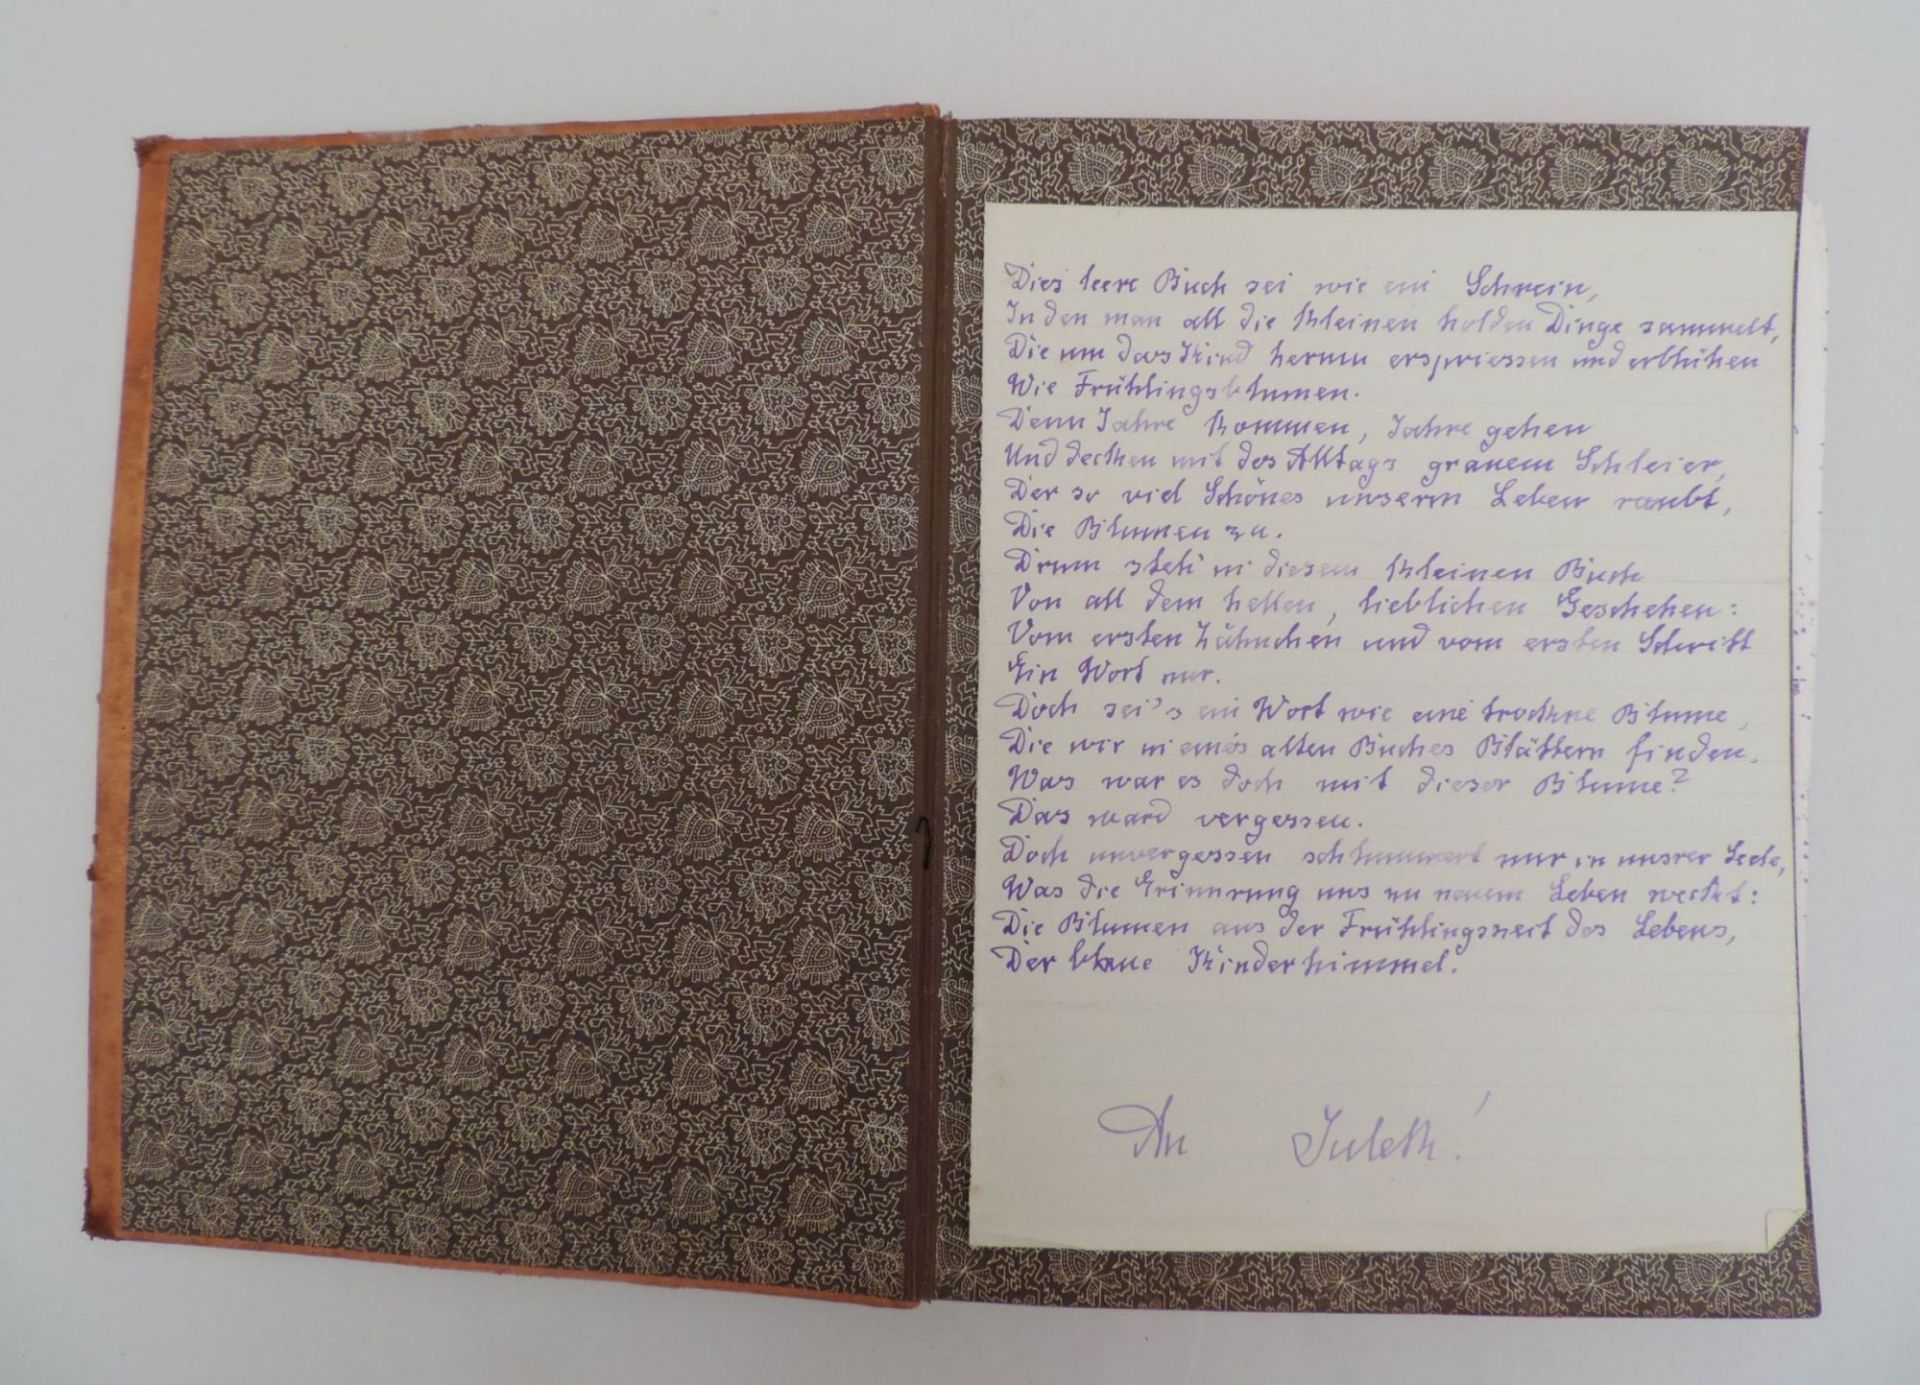 Dies leere Buch sei wie ein Schrein,
In den man all die kleinen holden Dinge sammelt,
Die um das Kind herum erspriessen und erblühen
Wie Frühlingsblumen.
Denn Jahre kommen, Jahre gehen
Und decken mit des Alltags grauem Schleier,
Der so viel Schönes unserm Leben raubt,
Die Blumen zu.
Drum steh' in diesem kleinen Buch
Von all dem hellen, lieblichen Geschehen:
Vom ersten Zähnchen und vom ersten Schritt
Ein Wort nur.
Doch sei's ein Wort wie eine trockne Blume,
Die wir in eines alten Buches Blättern finden.
Was war es doch mit dieser Blume?
Das ward vergessen.
Doch unvergessen schlummert nur in unsrer Seele,
Was die Erinnrung uns zu neuem Leben wecket:
Die Blumen aus der Frühlingszeit des Lebens,
Der blaue Kinderhimmel.
An Julek!